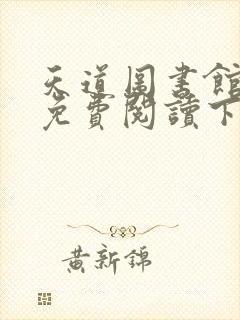 天道圖書館
免費閱讀下
黃新錦